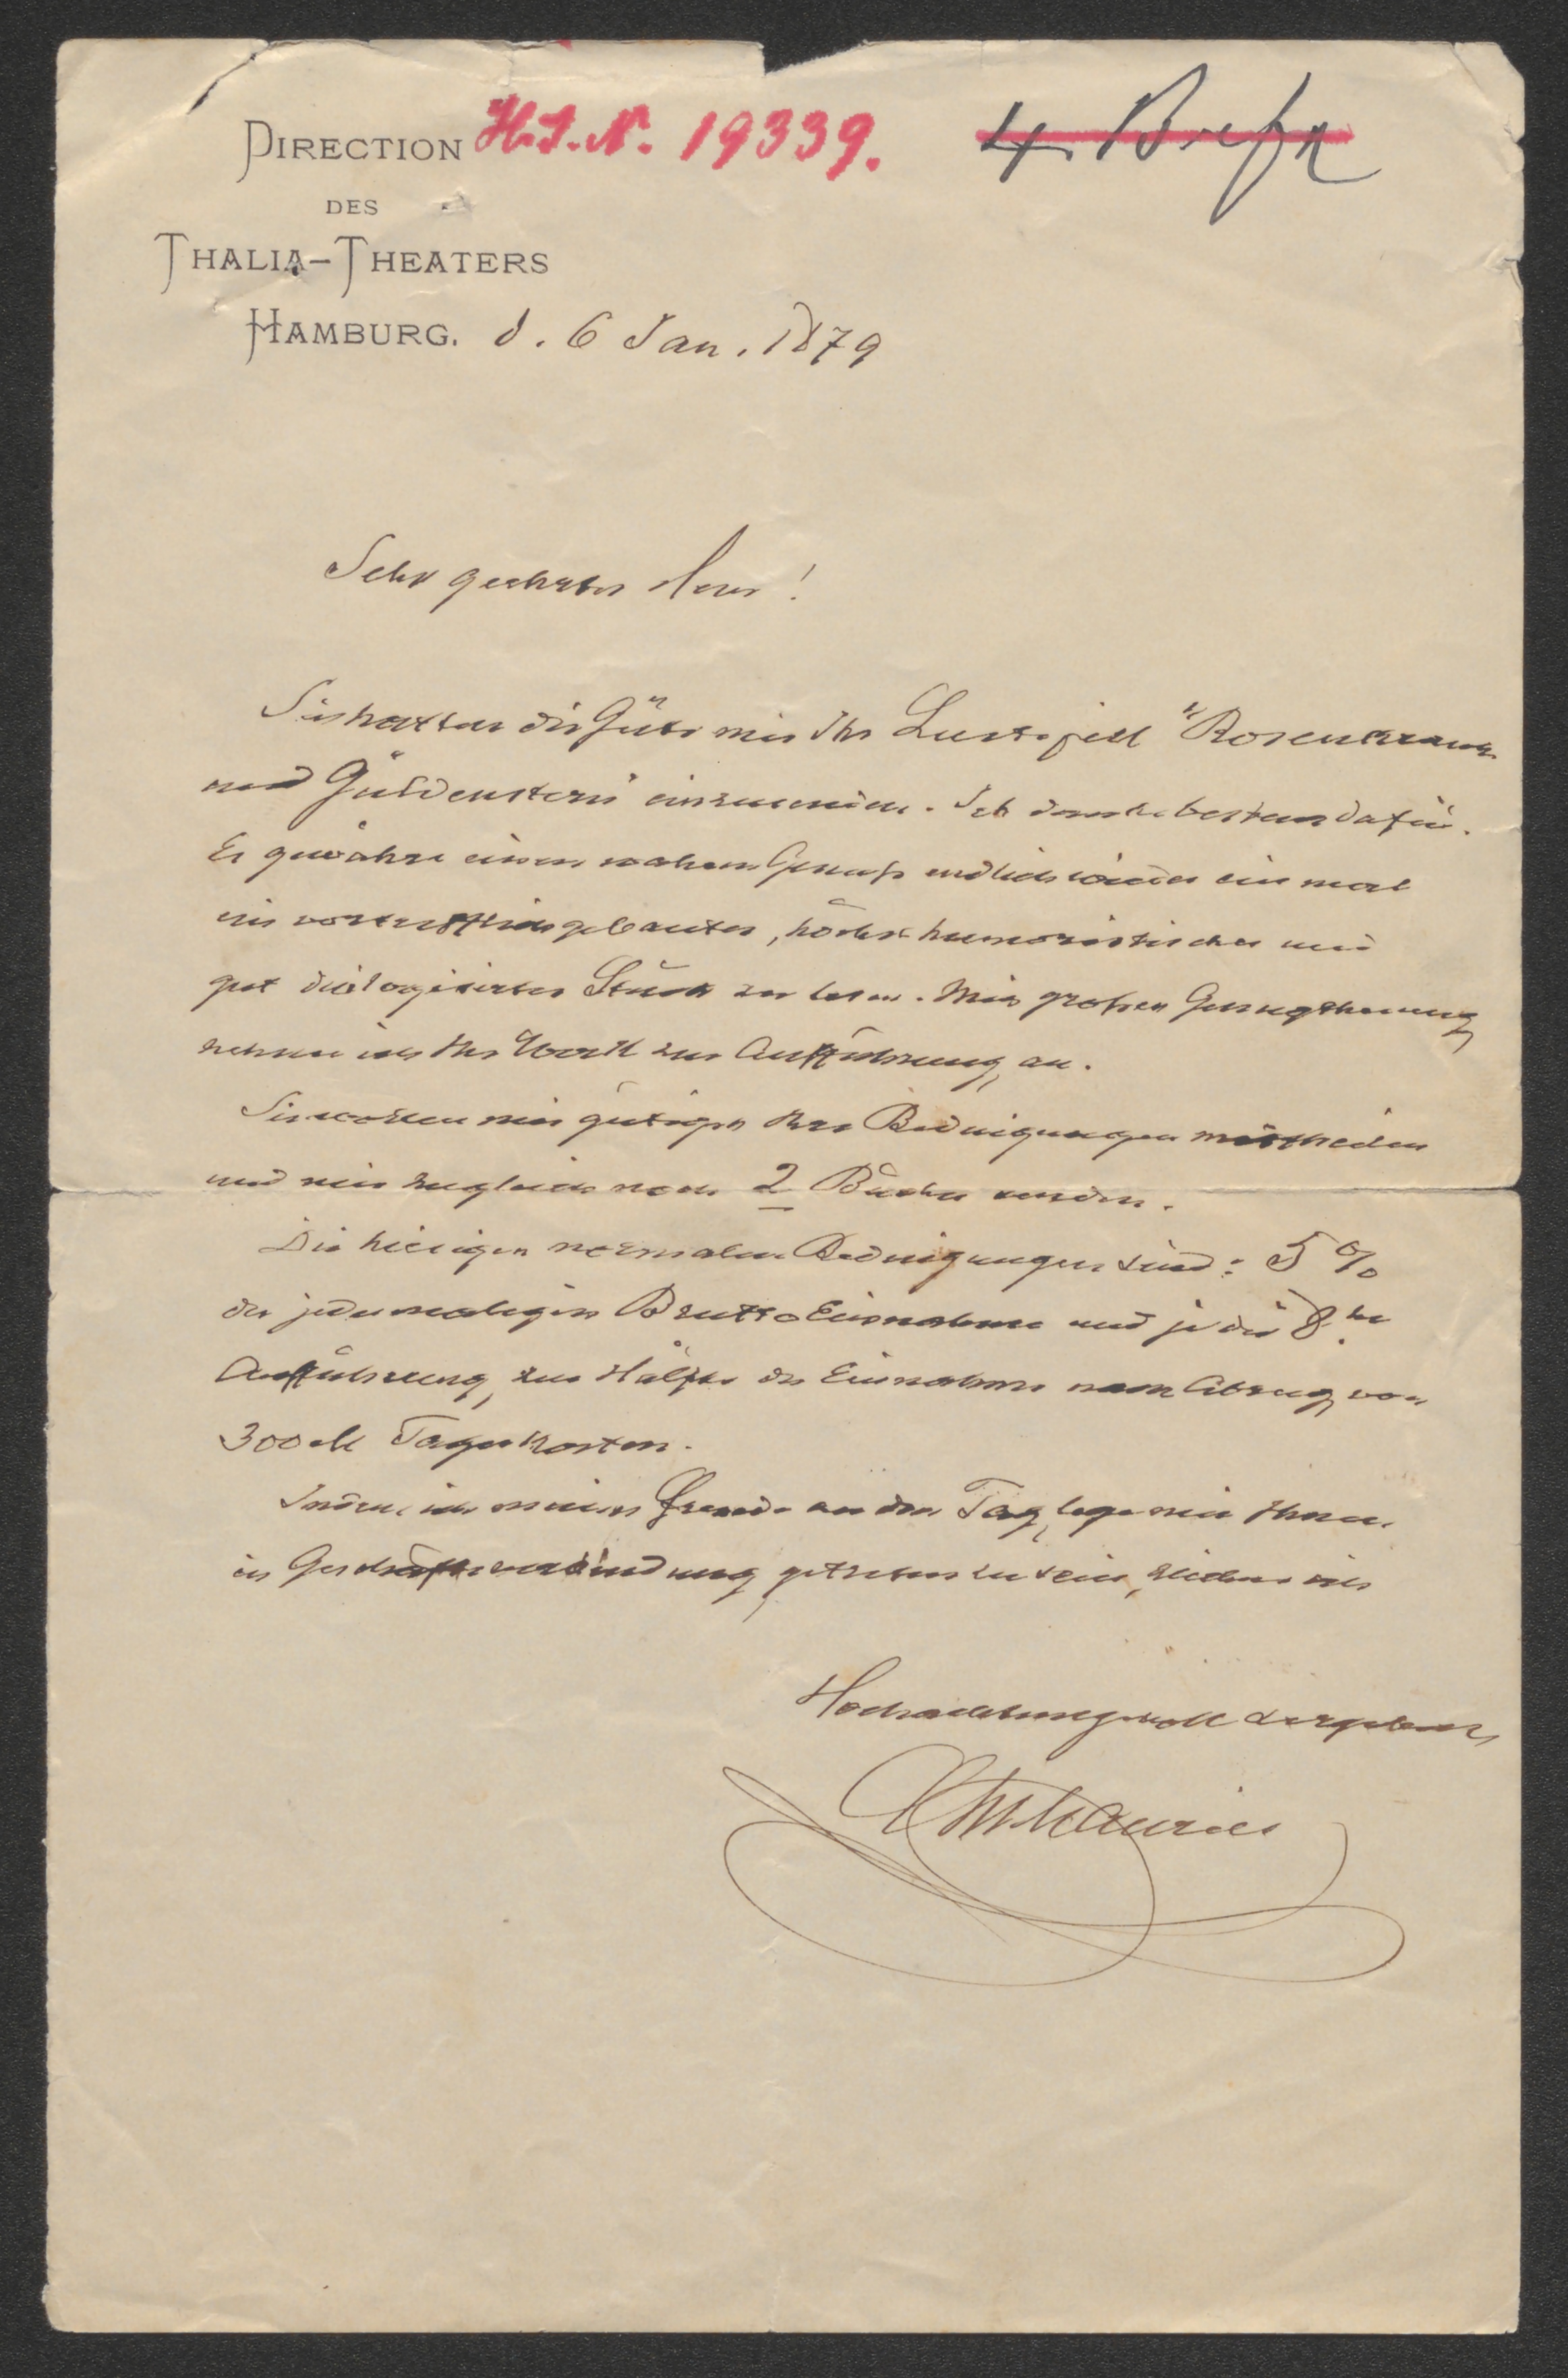 DIRECTION H.I.N. 19339. 4 Briefe
DES
THALIA-THEATERS
HAMBURG. d. 6 Jan. 1879
Sehr geehrter Herr!
Sie hatten die Güte mir Ihr Lustspiel "Rosenkranz
und Güldenstern" einzureichen. Ich danke bestens dafür.
Es gewährt einen wahren Genuß endlich wieder ein mal
ein vortrefflich gebautes, höchst humoristisches und
gut dialogisirtes Stück zu lesen. Mit großer Genugthuung
nehme ich Ihr Werk zur Aufführung an.
Sie wollen mir gütigst Ihre Bedingungen mittheilen
und mir zugleich noch 2 Bücher senden.
Die hiesigen normalen Bedingungen sind: 5 %
der jedesmaligen Brutto Einnahme und je die 8te
Aufführung, zur Hälfte der Einnahme nach Abzug von
300 M Tageskosten.
Indem ich meine Freude an den Tag lege mit Ihnen
in Geschäftsverbindung getreten zu sein, zeichne ich
Hochachtungsvoll ergebenst
Maurice